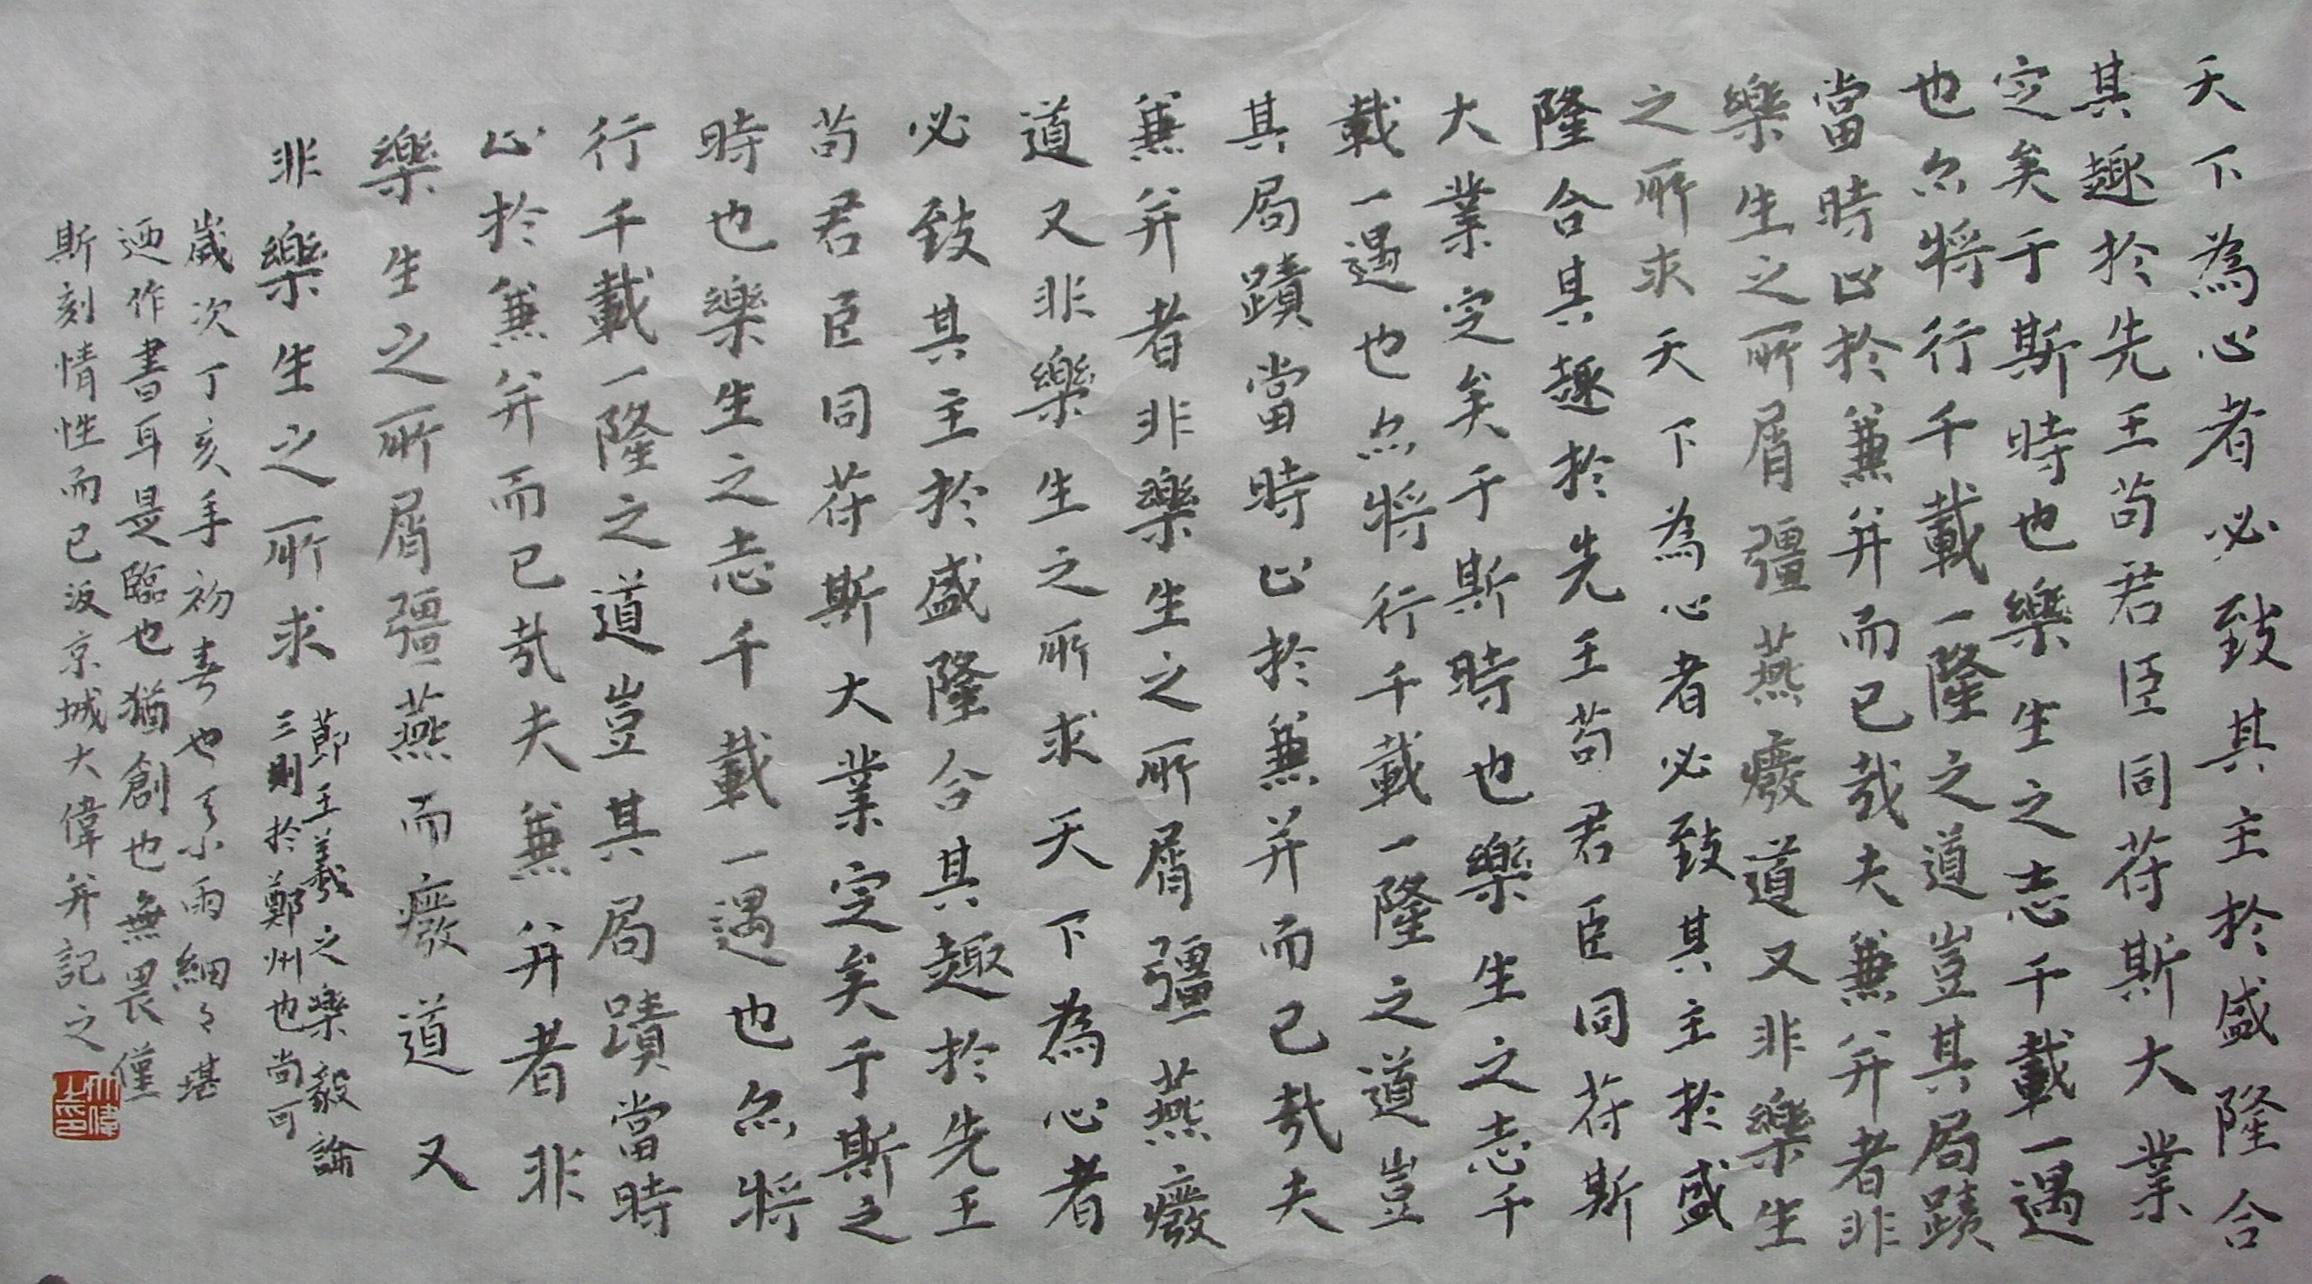 天下為心者必致其主於盛隆合
其趣於先王苟君臣同苻斯大業
定矣于斯時也樂生之志千載一遇
也亦將行千載一隆之道豈其局蹟
當時止於兼并而已哉夫兼并者非
樂生之所屑彊燕癈道又非樂生
之所求天下為心者必致其主於盛
隆合其趣於先王苟君臣同苻斯
大業定矣于斯時也樂生之志千
載一遇也亦將行千載一隆之道豈
其局蹟當時止於兼并而已哉夫
兼并者非樂生之所屑彊燕癈
道又非樂生之所求天下為心者
必致其主於盛隆合其趣於先王
苟君臣同苻斯大業定矣于斯之
時也樂生之志千載一遇也亦將
行千載一隆之道豈其局蹟當時
止於兼并而已哉夫兼并者非
樂生之所屑彊燕而癈道又
非樂生之所求
節王羲之樂毅論
三則於鄭州也尚可
歲次丁亥手初春也天小雨細々堪
迺作書耳是臨也猶創也無畏僅
斯刻情性而已返京城大偉并記之
大偉之印